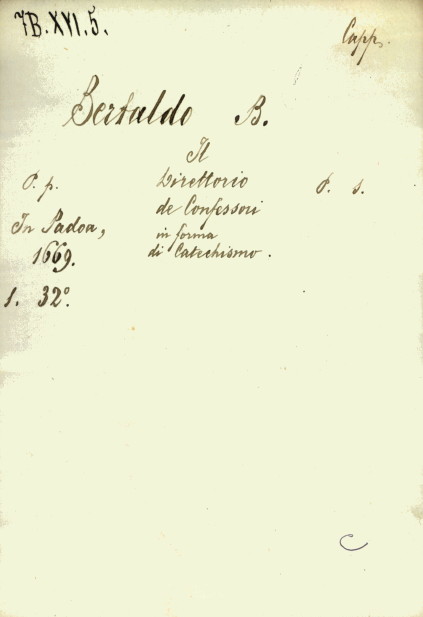 7B.XVI.5.
Capp.
Bertaldo B.
Il
P. p. Direttorio P. s.
de Confessori
In Padoa, in forma
1669. di Catechismo.
1. 32º
C